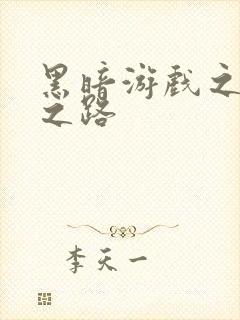 黑暗游戏之
之路
李天一